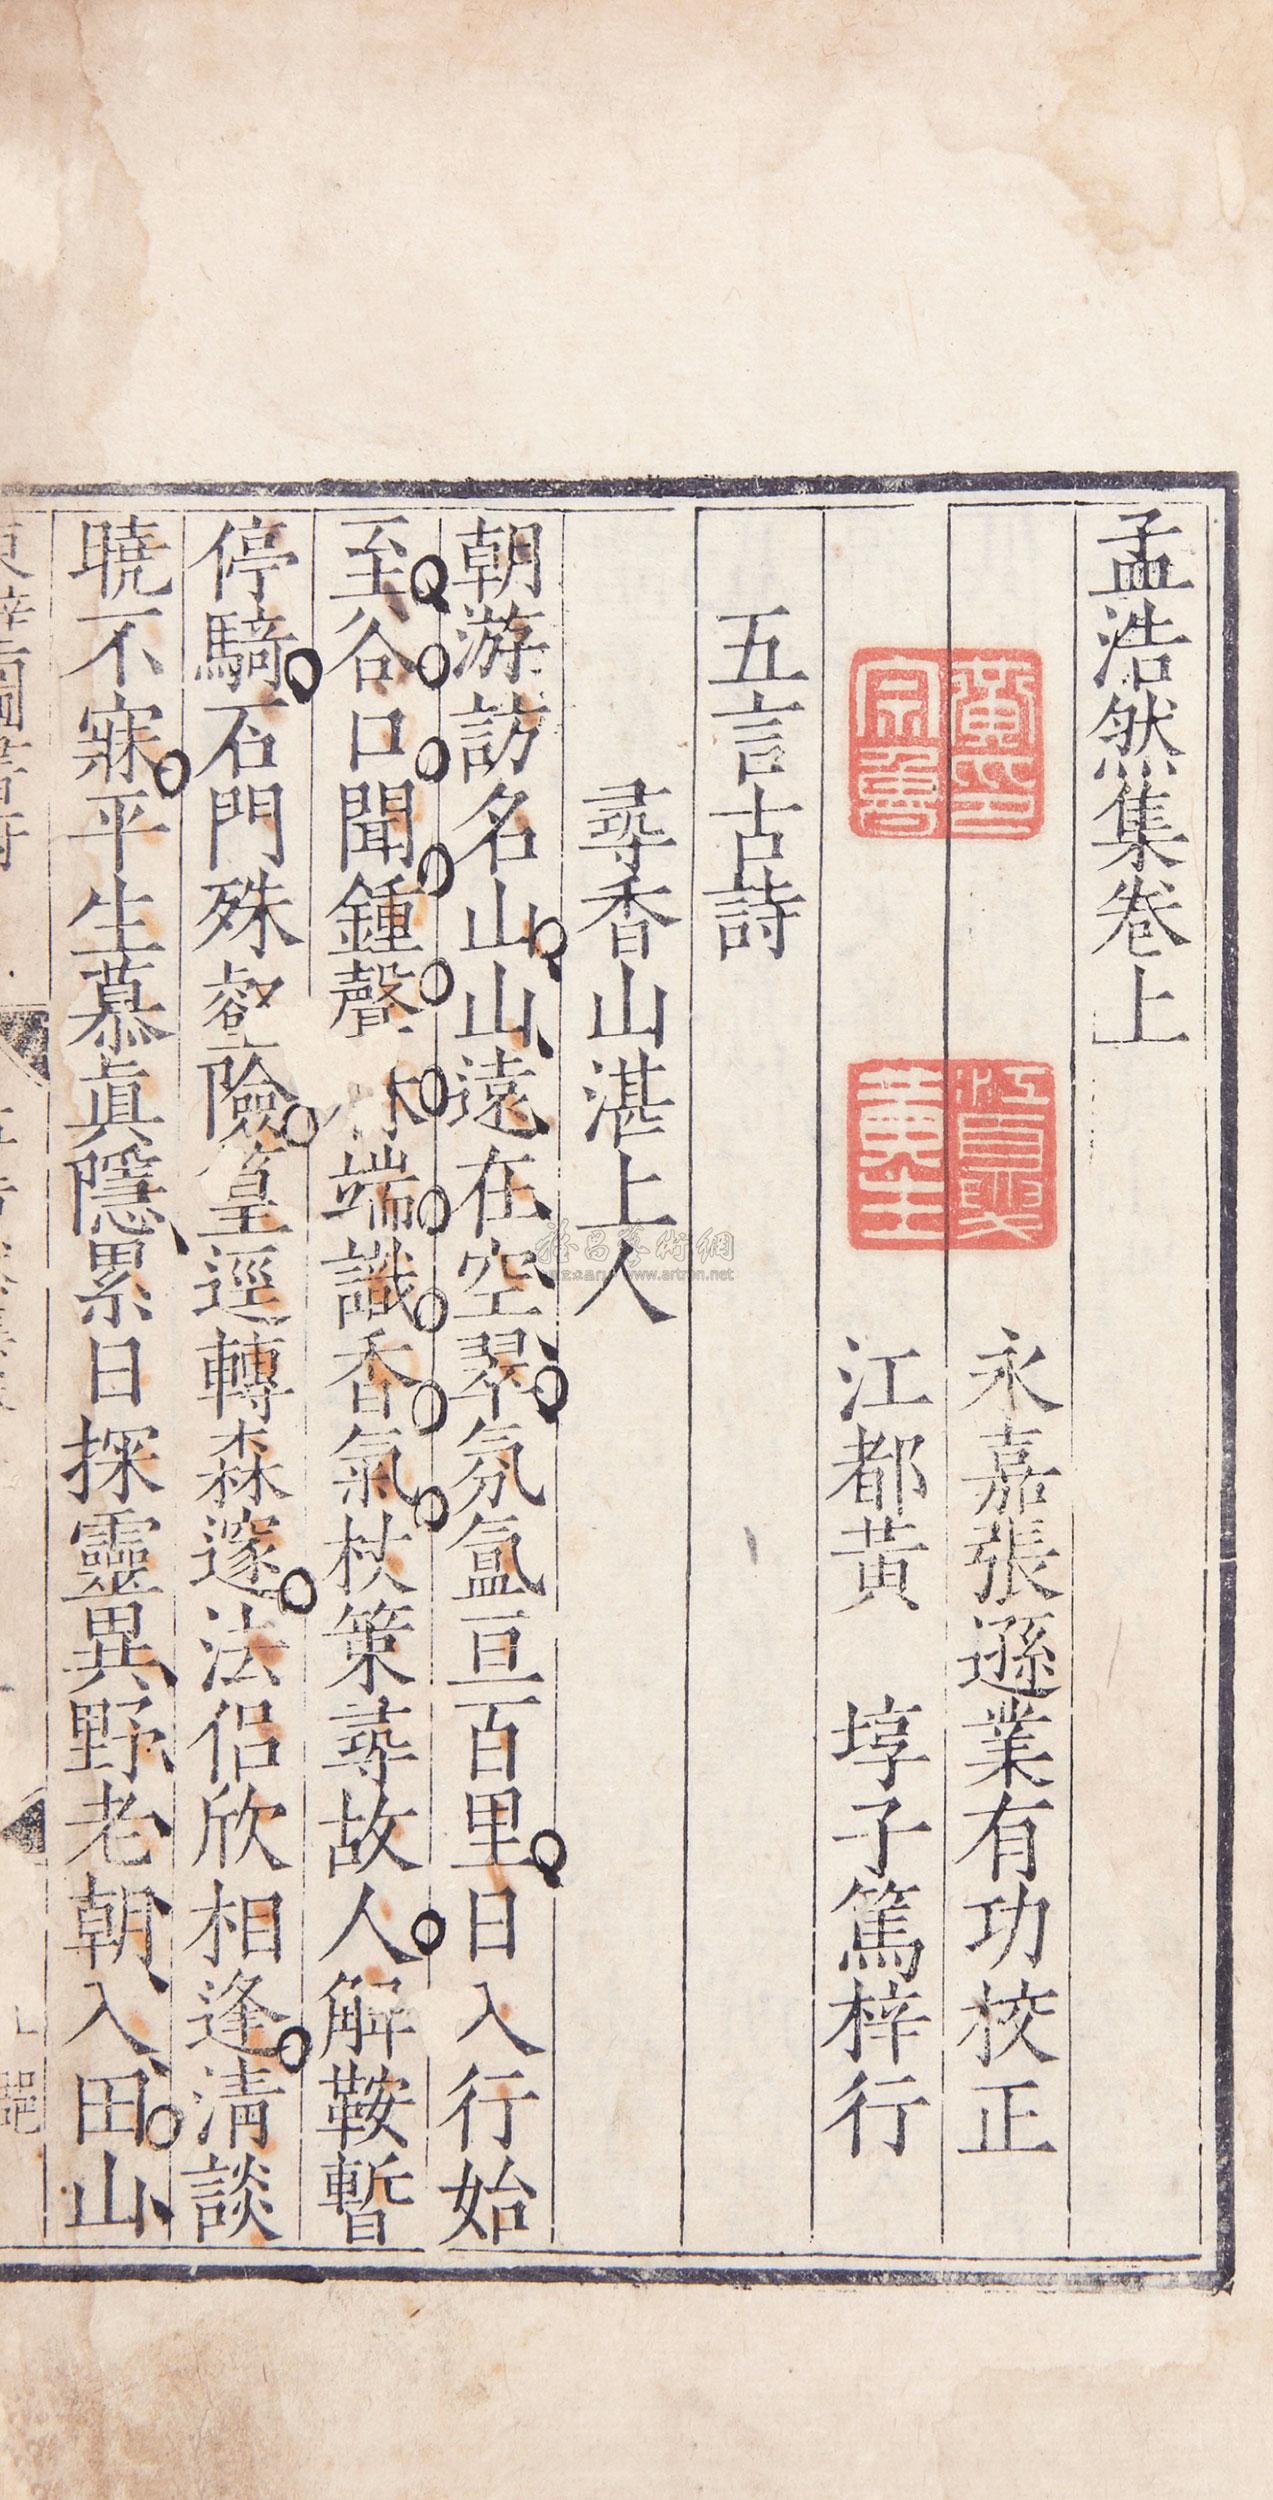 孟浩然集卷上
永嘉張遜業有功校正
江都黃 埻子篤梓行
五言古詩
尋香山湛上人
朝游訪名山山遠在空翠氛氳亘百里日入行始
至谷口聞鍾聲 端識香氣杖策尋故人解鞍暫
停騎石門殊壑險篁逕轉森邃法侶欣相逢清談
曉不寐平生慕眞隱累日探靈異野老朝入田山